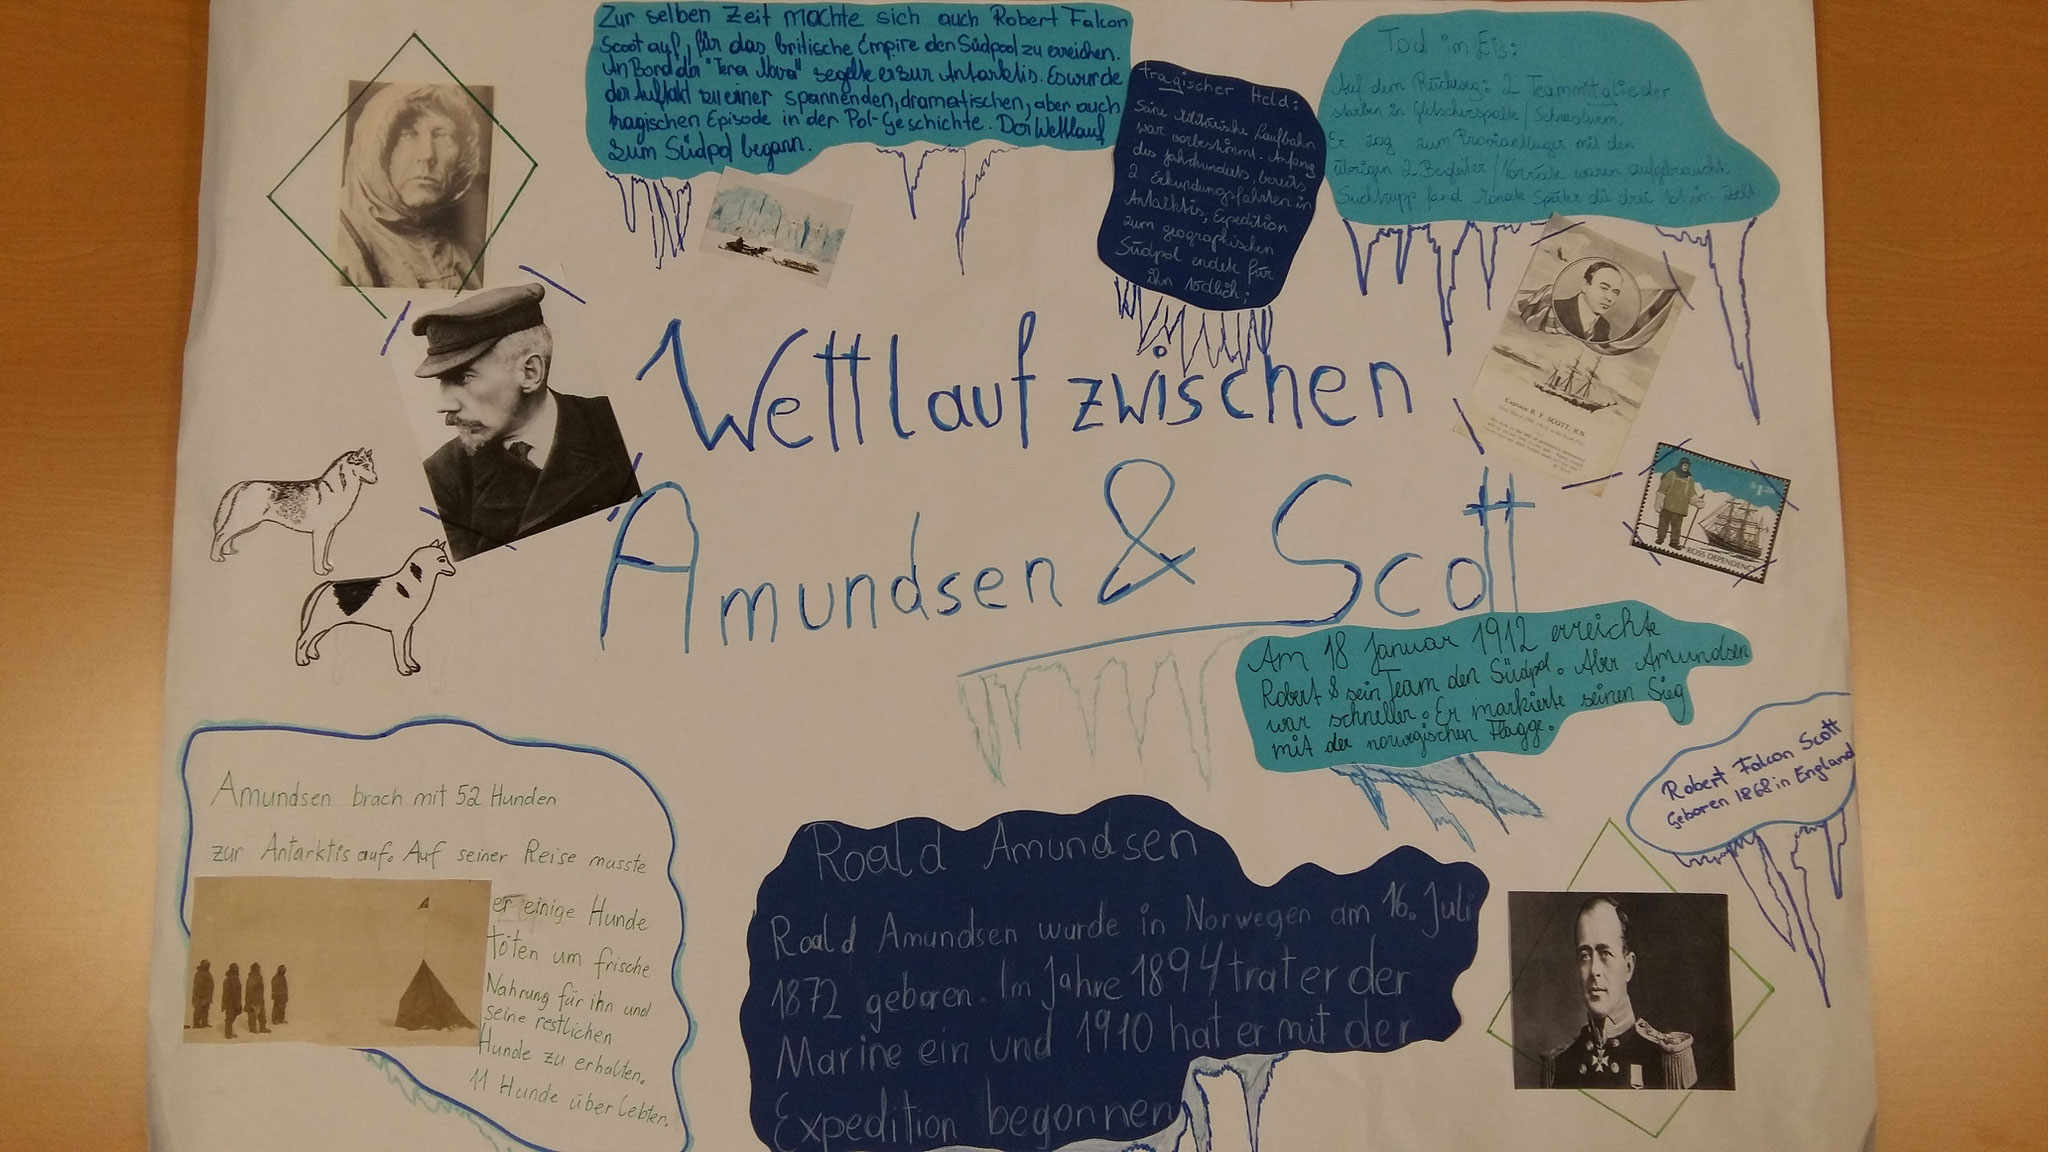 Zur selben Zeit machte sich auch Robert Falcon
Scoot auf, für das britische Empire den Südpol zu erreichen.
An Bord der "Tera Nova" segelte er zur Antarktis. Es wurde
der Auftakt zu einer spannenden, dramatischen, aber auch
tragischen Episode in der Pol-Geschichte. Der Wettlauf
zum Südpol begann.
tragischer Held:
Seine militärische Laufbahn
war vorbestimmt. Anfang
des Jahrhunderts, bereits
2 Erkundungsfahrten in
Antarktis, Expedition
zum geographischen
Südpol endet für
ihn tödlich;
Tod im Eis:
Auf dem Rückweg: 2 Teammitglieder
starben in Gletscherspalte / Schneesturm.
Er zog zum Proviantlager mit den
übrigen 2 Begleiter / Vorräte waren aufgebraucht.
Suchtrupp fand Monate später die drei tot im Zelt
Wettlauf zwischen
Amundsen & Scott
Captain R. F. SCOTT, R.N
$1.20
ROSS DEPENDENCY
Am 18 Januar 1912 erreichte
Robert & sein Team den Südpol. Aber Amundsen
war schneller. Er markierte seinen Sieg
mit der norwegischen Flagge.
Robert Falcon Scott
Geboren 1868 in England
Amundsen brach mit 52 Hunden
zur Antarktis auf. Auf seiner Reise musste
er einige Hunde
töten um frische
Nahrung für ihn und
seine restlichen
Hunde zu erhalten.
11 Hunde überlebten.
Roald Amundsen
Roald Amundsen wurde in Norwegen am 16. Juli
1872 geboren. Im Jahre 1894 trat er der
Marine ein und 1910 hat er mit der
Expedition begonnen